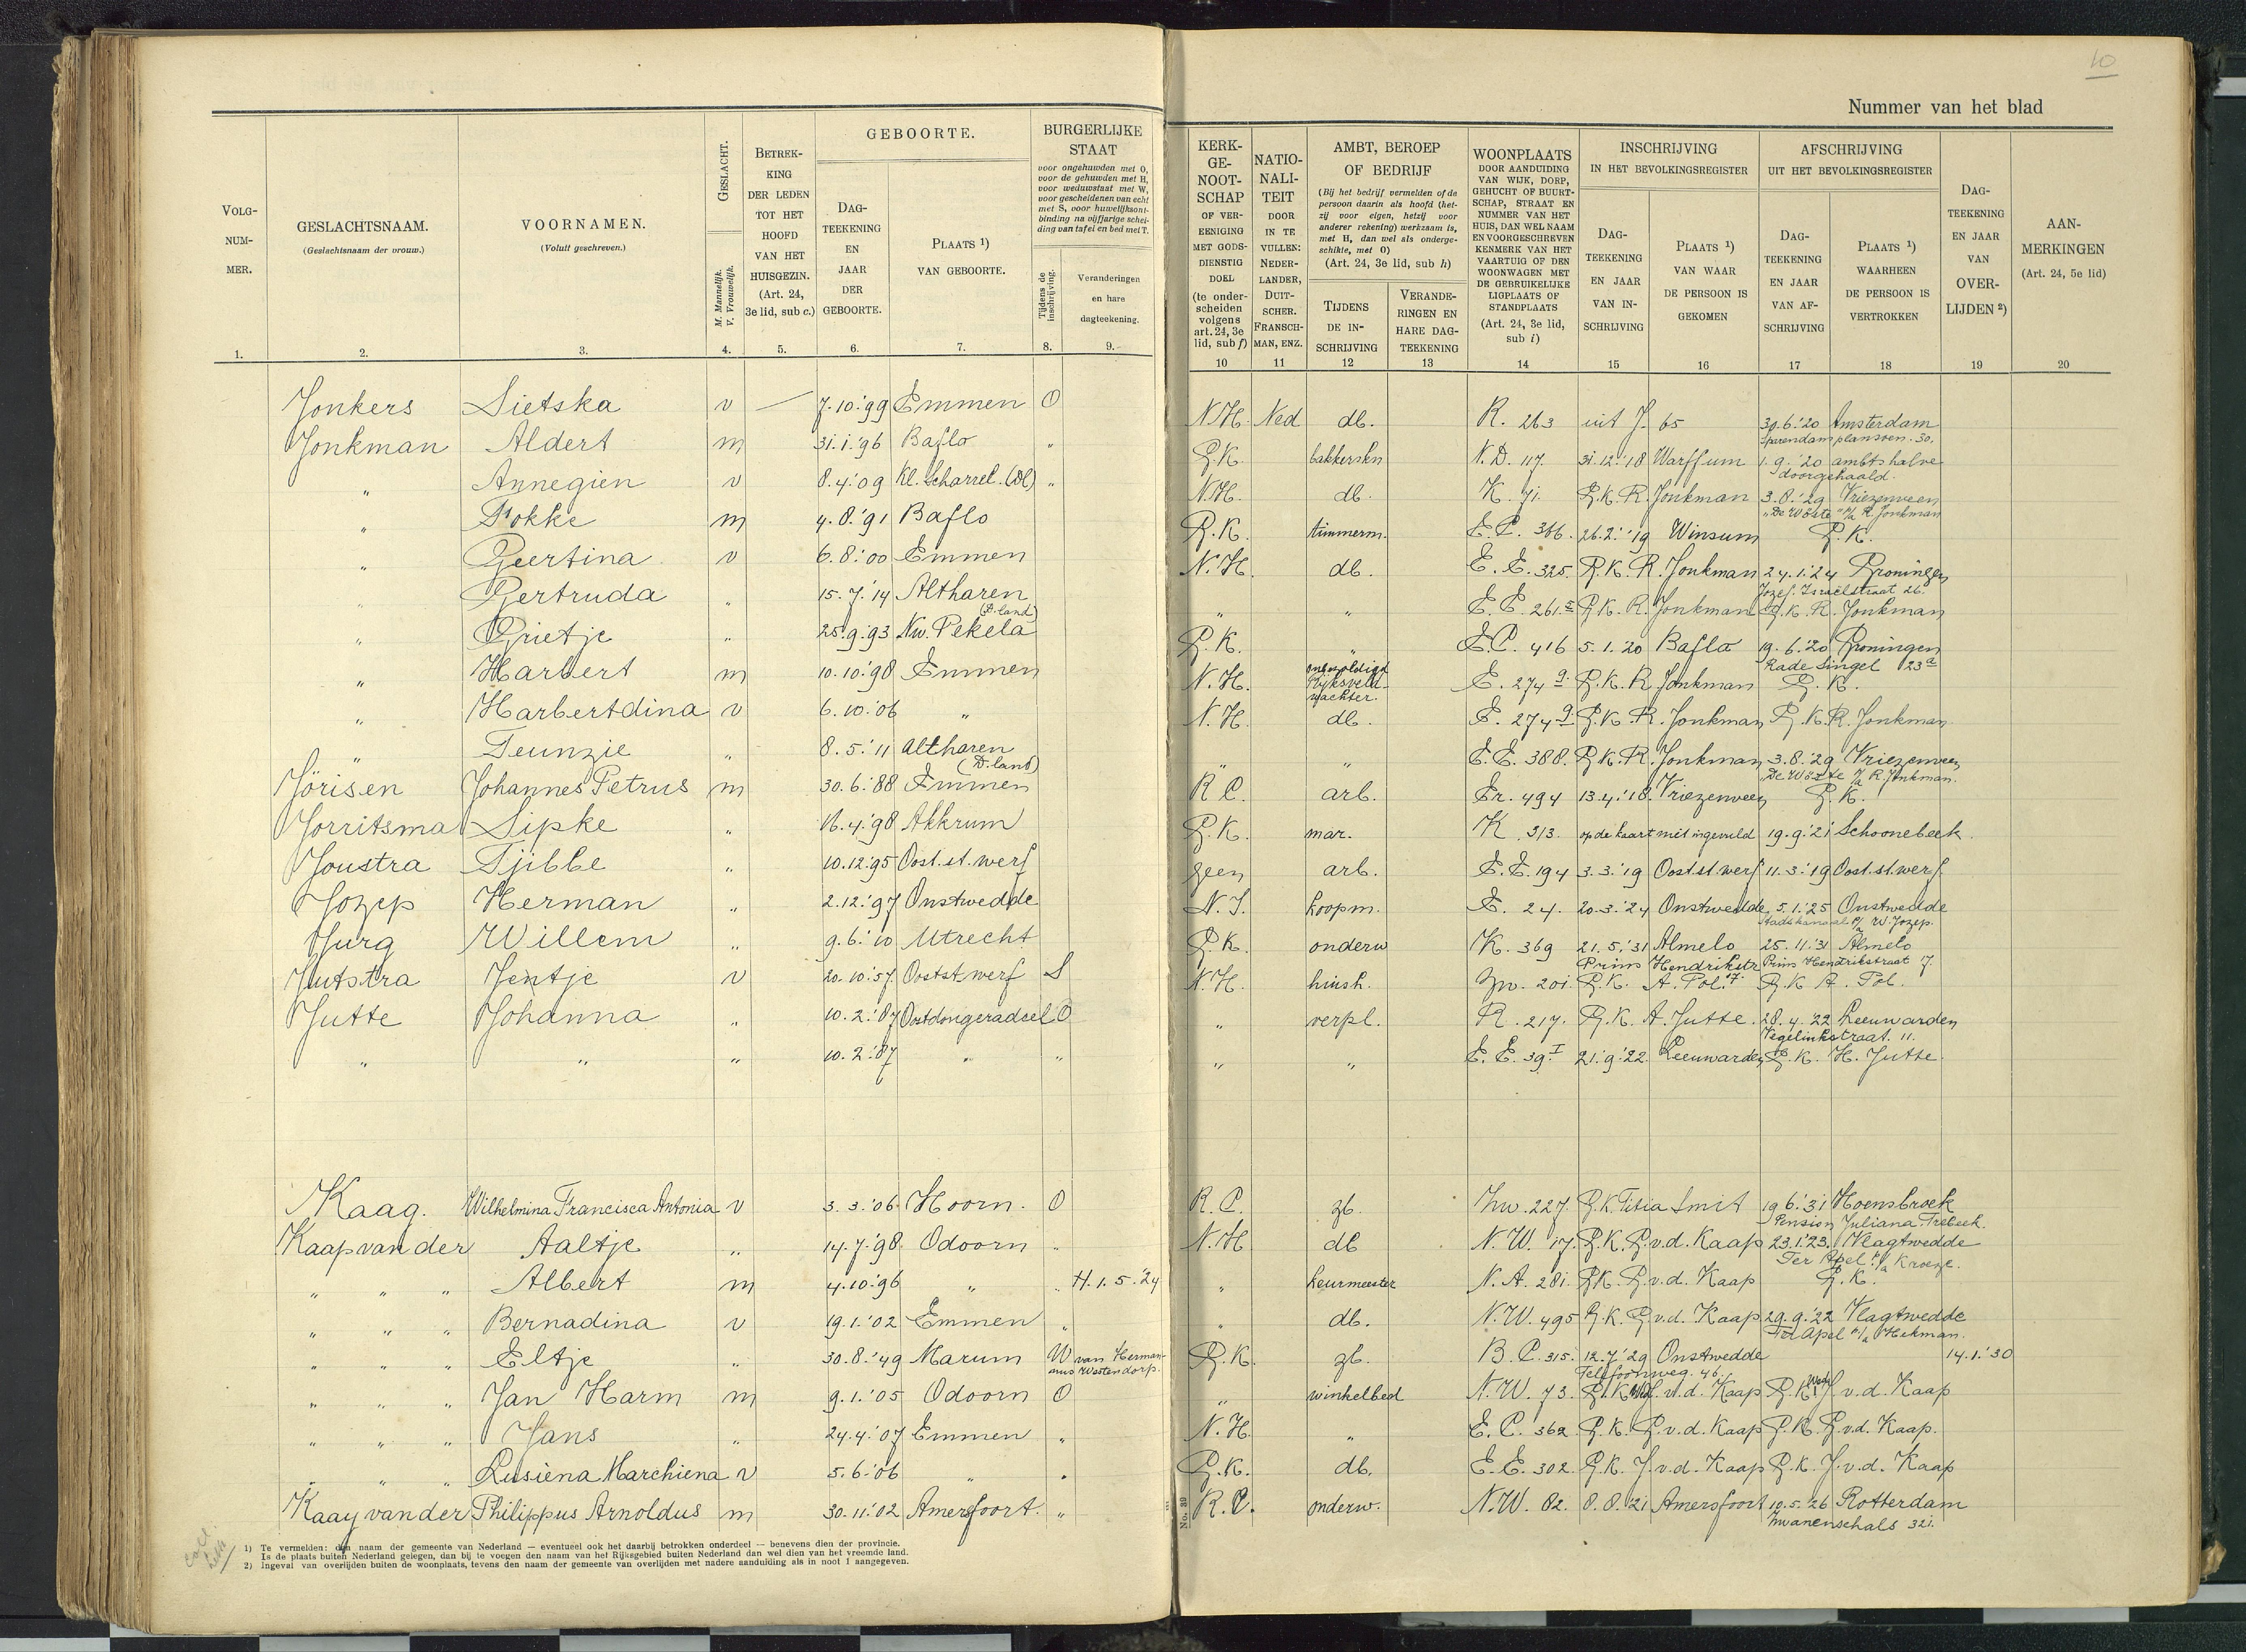 10
Nummer van het blad
VOLG-NUM-MER.
GESLACHTSNAAM.
(Geslachtsnaam der vrouw.)
VOORNAMEN.
(Voluit geschreven.)
GESLACHT.
M. Mannelijk.
V. Vrouwelijk.
BETREK-KING DER LEDEN TOT HET HOOFD VAN HET HUISGEZIN.
(Art. 24, 3e lid, sub c.)
GEBOORTE.
DAG-TEEKENING EN JAAR DER GEBOORTE.
PLAATS 1) VAN GEBOORTE.
BURGERLIJKE STAAT
voor ongehuwden met O, voor de gehuwden met H, voor weduwstaat met W, voor gescheidenen van echt met S, voor huwelijksont-binding na vijfjarige schei-ding van tafel en bed met T.
Tijdens de inschrijving.
Veranderingen en hare dagteekening.
KERK-GE-NOOT-SCHAP OF VER-EENIGING MET GODS-DIENSTIG DOEL
(te onder-scheiden volgens art. 24, 3e lid, sub f)
NATIO-NALI-TEIT DOOR IN TE VULLEN: NEDER-LANDER, DUIT-SCHER. FRANSCH-MAN, ENZ.
AMBT, BEROEP OF BEDRIJF
(Bij het bedrijf vermelden of de persoon daarin als hoofd (het-zij voor eigen, hetzij voor anderer rekening) werkzaam is, met H, dan wel als onderge-schikte, met O)
(Art. 24, 3e lid, sub h)
TIJDENS DE IN-SCHRIJVING
VERANDE-RINGEN EN HARE DAG-TEEKENING
WOONPLAATS DOOR AANDUIDING VAN WIJK, DORP, GEHUCHT OF BUURT-SCHAP, STRAAT EN NUMMER VAN HET HUIS, DAN WEL NAAM EN VOORGESCHREVEN KENMERK VAN HET VAARTUIG OF DEN WOONWAGEN MET DE GEBRUIKELIJKE LIGPLAATS OF STANDPLAATS
(Art. 24, 3e lid, sub i)
INSCHRIJVING IN HET BEVOLKINGSREGISTER
DAG-TEEKENING EN JAAR VAN IN-SCHRIJVING
PLAATS 1) VAN WAAR DE PERSOON IS GEKOMEN
AFSCHRIJVING UIT HET BEVOLKINGSREGISTER
DAG-TEEKENING EN JAAR VAN AF-SCHRIJVING
PLAATS 1) WAARHEEN DE PERSOON IS VERTROKKEN
DAG-TEEKENING EN JAAR VAN OVER-LIJDEN 2)
AAN-MERKINGEN
(Art. 24, 5e lid)
1. 2. 3. 4. 5. 6. 7. 8. 9. 10 11 12 13 14 15 16 17 18 19 20
Jonkers Sietska v — 7.10.'99 Emmen O N.H. Ned db. R. 263 uit J. 65 30.6.'20 Amsterdam
Sparendamplansoen. 30.
Jonkman Aldert m 31.1.'96 Baflo " G.K. bakkerskn N.D. 117. 31.12.'18 Warffum 1.9.'20 ambtshalve
doorgehaald.
" Annegien v 8.4.'09 Kl. Scharrel. (Dl) " N.H. db. K. 71. G.K. R. Jonkman 3.8.'29 Vriezenveen
"De Wöste" p/a R. Jonkman
" Fokke m 4.8.'91 Baflo G.K. timmerm. E.C. 366. 26.2.'19 Winsum G.K.
" Geertina v 6.8.'00 Emmen N.H. db. E.E. 325. G.K. R. Jonkman 24.1.'24 Groningen
Jozef Israëlstraat 26.
" Gertruda " 15.7.'14 Altharen
(D.land) " " E.E. 261.5 G.K. R. Jonkman G.K. R. Jonkman
" Grietje " 25.9.'93 Nw. Pekela G.K. " E.C. 416 5.1.'20 Baflo 19.6.'20 Groningen
Rade Singel 23a
" Harbert m 10.10.'98 Emmen N.H. onbezoldigd Rijksveld-wachter. E. 274 g. G.K. R. Jonkman G.K.
" Harbertdina v 6.10.'06 " N.H. db. E. 274 g G.K. R. Jonkman G.K. R. Jonkman
" Teunzie " 8.5.'11 Altharen
(D.land) " " E.E. 388. G.K. R. Jonkman 3.8.'29 Vriezenveen
"De Wöste p/a R. Jonkman.
Jörisen Johannes Petrus m 30.6.'88 Emmen R C. arb. Er. 494 13.4.'18. Vriezenveen G.K.
Jorritsma Sipke " 16.4.'98 Akkrum G.K. mar. K. 313. op de kaart niet ingevuld 19.9.'21 Schoonebeek
Joustra Tjibbe " 10.12.'95 Oost.st.werf geen arb. E.E. 194 3.3.'19 Oost.st.werf 11.3.'19 Oost.st.werf
Jozep Herman " 2.12.'97 Onstwedde N.I. koopm. E. 24. 20.3.'24 Onstwedde 5.1.'25 Onstwedde
Stadskanaal p/a W. Jozep.
Jurg Willem " 9.6.'10 Utrecht G.K. onderw K. 369 21.5.'31 Almelo 25.11.'31 Almelo
Prins Hendrikstr. 7. Prins Hendrikstraat 7
Jutstra Jentje v 20.10.'57. Oostst.werf S N.H. huish. Zw. 201. G.K. A. Pol. G.K A. Pol.
Jutte Johanna " 10.2.'87 Oostdongeradeel O " verpl. R. 217. G.K. A. Jutte. 28.4.'22 Leeuwarden
Vegelinkstraat. 11.
" " " 10.2.'87 " " " " E.E. 39 I 21.9.'22. Leeuwarden G.K. H. Jutte.
Kaag. Wilhelmina Francisca Antonia v 3.3.'06. Hoorn. O R.C. zb. Zw. 227. G.K. Titia Smit 19.6.'31 Hoensbroek
Pension Juliana. Trebeek.
Kaap van der Aaltje " 14.7.'98. Odoorn " N.H db N.W. 17. G.K. G.v.d. Kaap 23.1.'23. Vlagtwedde
Ter Apel p/a Kroeze.
" " " Albert m 4.10.'96 " " H. 1.5.'24 " keurmeester N.A. 281. G.K. G.v.d. Kaap G.K.
" " " Bernadina v 19.1.'02 Emmen " " db. N.W. 495 G.K. G.v.d. Kaap 29.9.'22 Vlagtwedde
Ter Apel p/a Hekman.
" " " Eltje " 30.8.'49 Marum W van Herman-nus Westendorp. G.K. zb. B.C. 315. 12.7.'29 Onstwedde 14.1.'30
Telefoonweg. 46.
" " " Jan Harm m 9.1.'05 Odoorn O " winkelbed N.W. 73. G.K. Wed. J. v.d. Kaap G.K. Wed. J. v.d. Kaap
" " " Jans " 24.4.'07 Emmen " N.H. " E.C. 362 G.K. G.v.d. Kaap G.K. G.v.d. Kaap.
" " " Lusiena Marchiena v 5.6.'06 " " G.K. db. E.E. 302. G.K. J.v.d. Kaap G.K. J.v.d. Kaap
Kaay van der Philippus Arnoldus m 30.11.'02 Amersfoort. " R.C. onderw. N.W. 82. 8.8.'21 Amersfoort 19.5.'26 Rotterdam
Zwanenschals 321.
No. 39
1) Te vermelden: den naam der gemeente van Nederland — eventueel ook het daarbij betrokken onderdeel — benevens dien der provincie.
Is de plaats buiten Nederland gelegen, dan bij te voegen den naam van het Rijksgebied buiten Nederland dan wel dien van het vreemde land.
2) Ingeval van overlijden buiten de woonplaats, tevens den naam der gemeente van overlijden met nadere aanduiding als in noot 1 aangegeven.